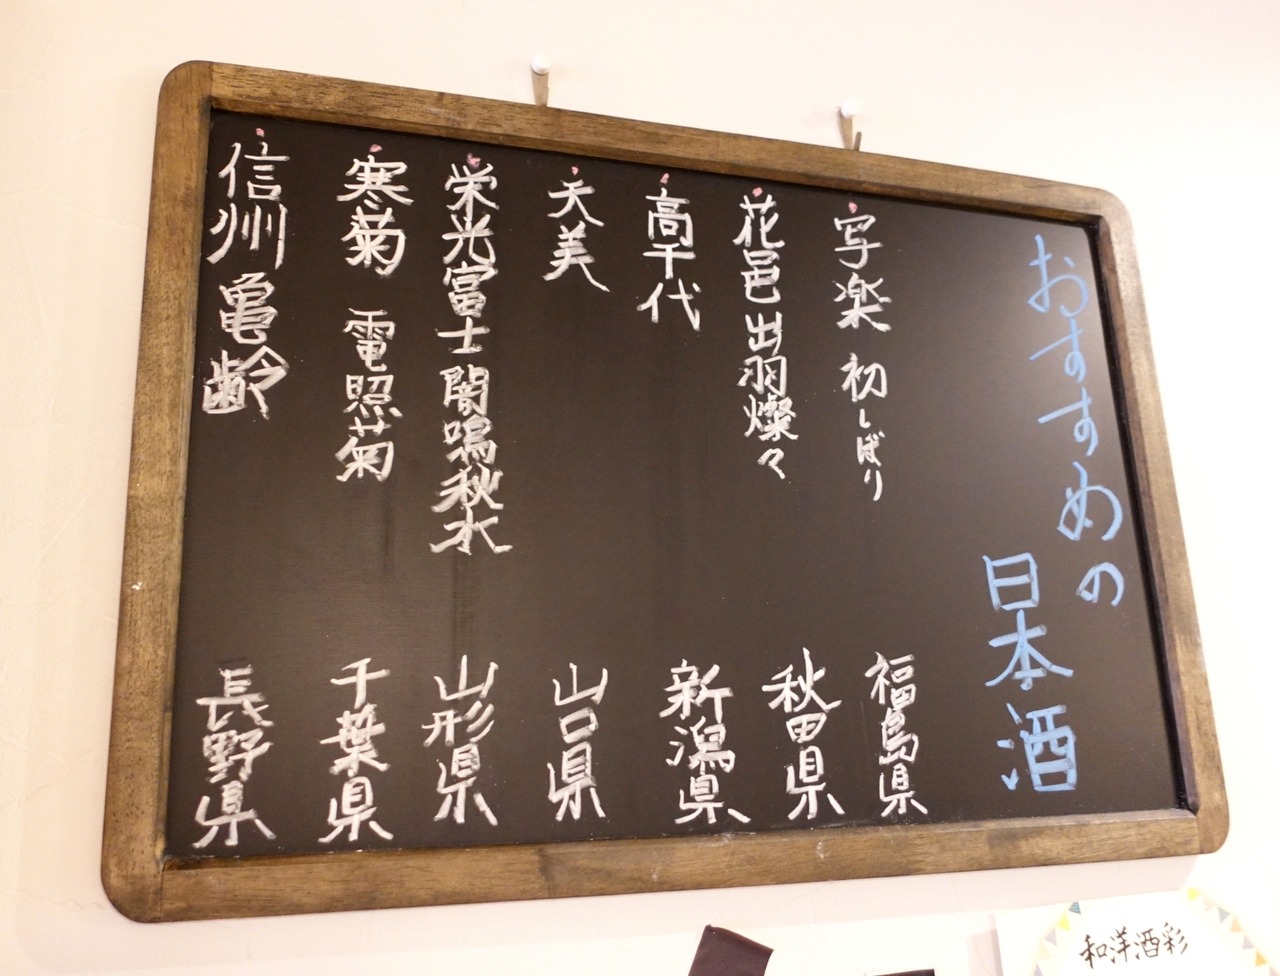 おすすめの
日本酒
写楽 初しぼり 福島県
花邑 出羽燦々 秋田県
高千代 新潟県
天美 山口県
栄光冨士 闇鳴秋水 山形県
寒菊 電照菊 千葉県
信州亀齢 長野県
和洋酒彩